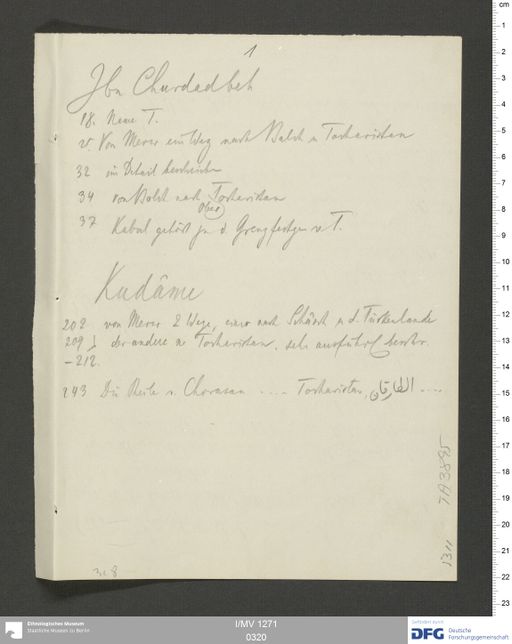 1
Jbn Churdadbeh
18. Neue T.
v. Von Merw ein Weg nach Balch u Tocharistan
32 im Detail beschrieben
34 von Balch nach Tocharistan
Ober
37 Kabul gehört zu d. Grenzfestgen v T.
Kudâme
202 von Merw 2 Wege, einer nach Schâsch u d. Türkenlande
209 der andere n Tocharistan. sehr ausführl beschr.
- 212.
243 Die Theile v. Chorasan .... Tocharistan, ....
TA 3895
1311
318
Ethnologisches Museum
Staatliche Museen zu Berlin
I/MV 1271
0320
Gefördert durch
DFG Deutsche
Forschungsgemeinschaft
cm
1
2
3
4
5
6
7
8
9
10
11
12
13
14
15
16
17
18
19
20
21
22
23